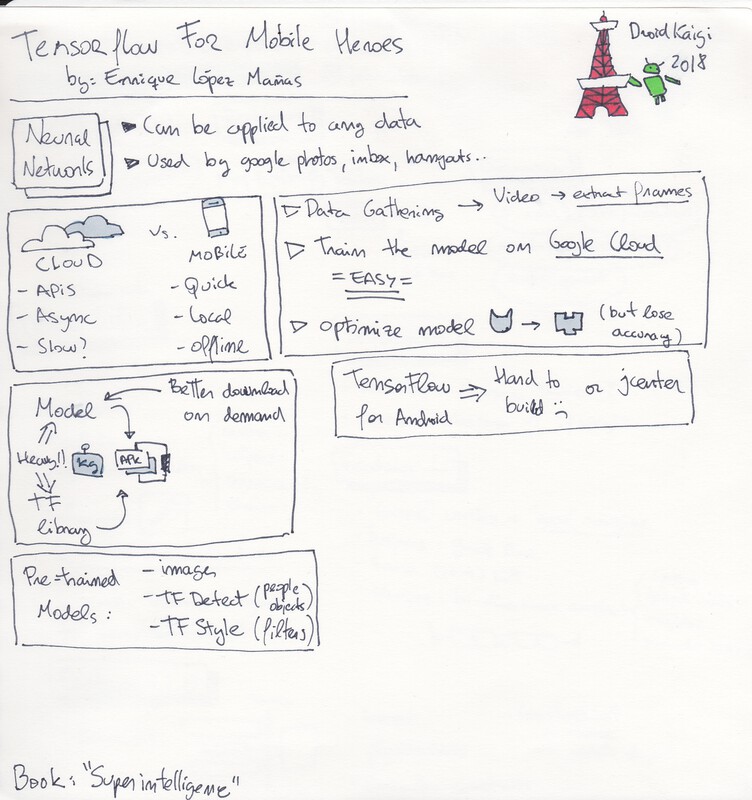 Tensorflow For Mobile Heroes
by: Enrique López Mañas
Droid Kaigi
2018
Neural
Networks
Can be applied to any data
Used by google photos, inbox, hangouts..
CLOUD
vs.
MOBILE
- APIs
- Async
- Slow?
- Quick
- Local
- Offline
Data Gathering → Video → extract frames
Train the model on Google Cloud
= EASY =
Optimize model → (but lose
accuracy)
Model
Better download
on demand
Heavy!!
Kg
APK
TF
library
TensorFlow
for Android
⇒ Hard to
build :(
or jcenter
Pre-trained
Models:
- images
- TF Detect (people
objects)
- TF Style (filters)
Book: "Superintelligence"